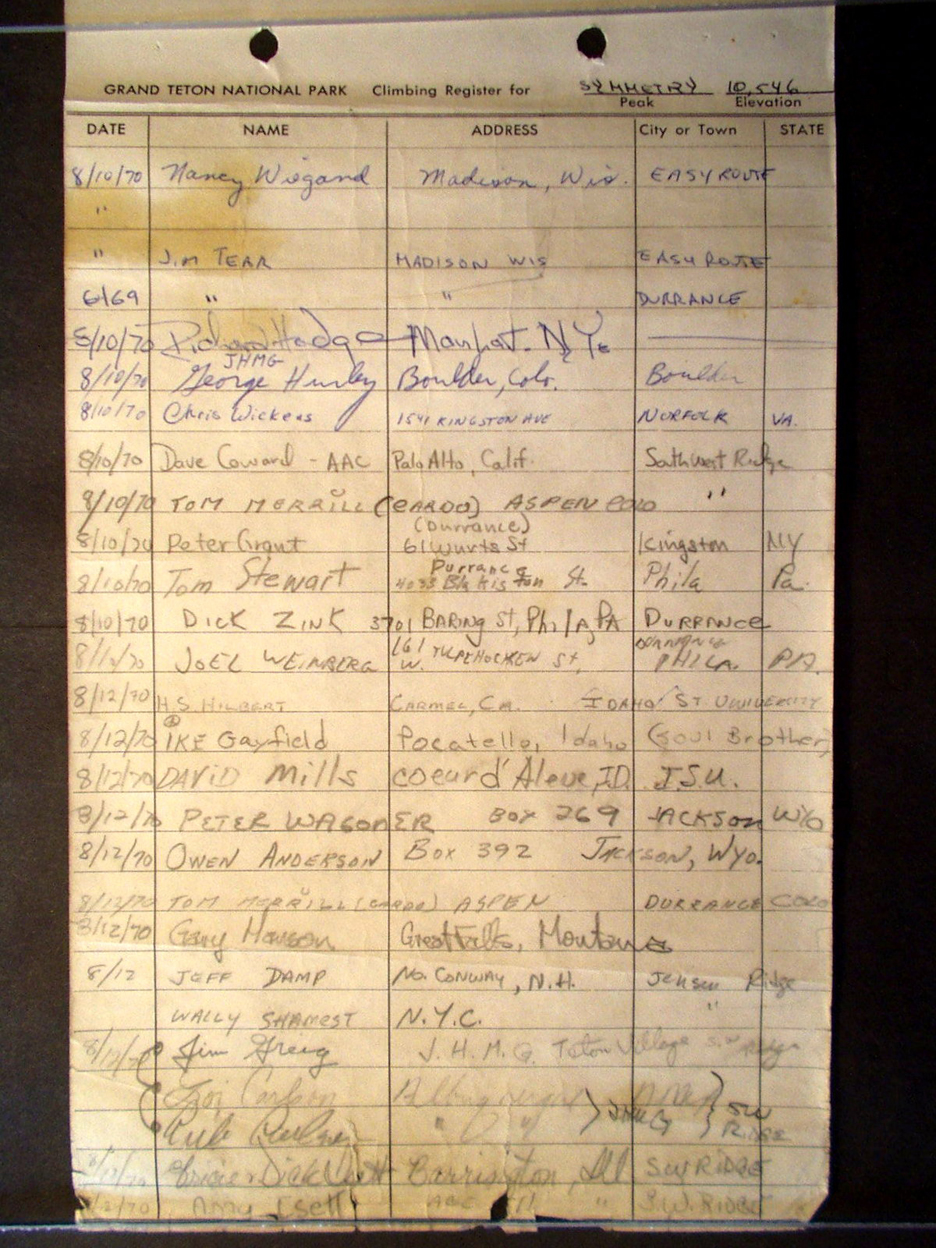 GRAND TETON NATIONAL PARK Climbing Register for SYMMETRY 10,546
Peak Elevation
DATE NAME ADDRESS City or Town STATE
8/10/70 Nancy Wiegand Madison, Wis. EASY ROUTE
"
" JIM TEAR MADISON WIS EASY ROUTE
6/69 " " DURRANCE
8/10/70 Richard Hodge Manhat. N.Y.
JHMG
8/10/70 George Hurley Boulder, Colo. Boulder
8/10/70 Chris Wickens 1541 KINGSTON AVE NORFOLK VA.
8/10/70 Dave Coward - AAC Palo Alto, Calif. Sathwest Ridge
8/10/70 TOM MERRILL (CARDO) ASPEN COLO "
(Durrance)
8/10/70 Peter Grant 61 Wurts St Kingston NY
Durrance
8/10/70 Tom Stewart St. Phila Pa.
8/10/70 DICK ZINK 3701 BARING St, Phila, PA DURRANCE
161 DURRANCE
JOEL WEINBERG W. TULPEHOCKEN St, PHILA. PA.
8/12/70 H.S. HILBERT CARMEL, CA. IDAHO ST. UNIVERSITY
8/12/70 IKE Gayfield Pocatello, Idaho (Soul Brother)
8/12/70 DAVID Mills coeur d'Alene, ID. I.S.U.
8/12/70 PETER WAGONER BOX 269 JACKSON WYO
8/12/70 OWEN ANDERSON Box 392 JACKSON, WYO.
8/12/70 TOM MERRILL (CARDO) ASPEN DURRANCE COLO
8/12/70 Gary Hanson Great Falls, Montana
8/12 JEFF DAMP No. CONWAY, N.H. Jensen Ridge
WALLY SHAMEST N.Y.C. "
8/12/70 Jim Greig J.H.M.G. Teton Village S.W Ridge
Carlson Albuquerque N.M. SW
" " JHMG RIDGE
Dick Esett Barrington, Ill SW RIDGE
Amy Esett AGE 11 " S.W. RIDGE